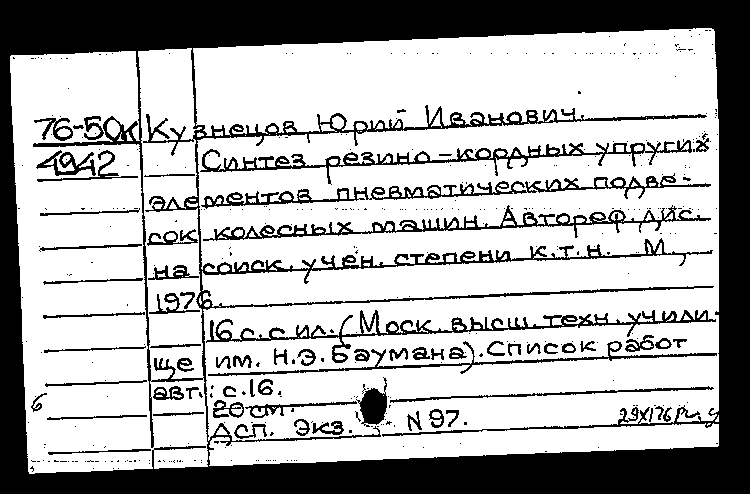 76-50к Кузнецов, Юрий Иванович.
4942 Синтез резино-кордных упругих
элементов пневматических подве-
сок колесных машин. Автореф. дис.
на соиск. учен. степени к.т.н. М.,
1976.
16 с. с ил. (Моск. высш. техн. учили-
ще им. Н.Э. Баумана). Список работ
авт.: с. 16.
20 см.
6
Дсп. Экз. N 97.